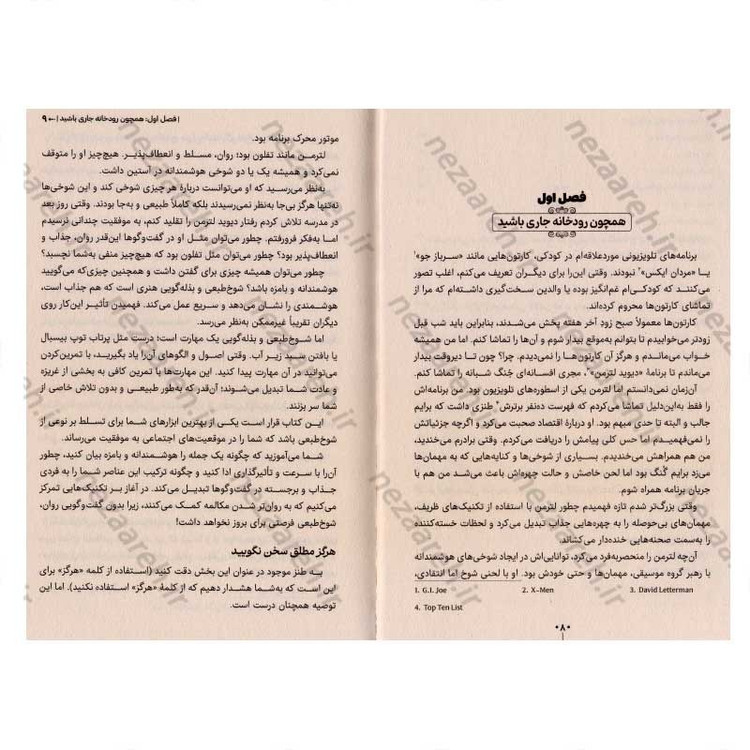 فصل اول
همچون رودخانه جاری باشید
برنامه‌های تلویزیونی موردعلاقه‌ام در کودکی، کارتون‌هایی مانند «سرباز جو»۱
یا «مردان ایکس»۲ نبودند. وقتی این‌را برای دیگران تعریف می‌کنم، اغلب تصور
می‌کنند که کودکی‌ام غم‌انگیز بوده یا والدین سخت‌گیری داشته‌ام که مرا از
تماشای کارتون‌ها محروم کرده‌اند.
کارتون‌ها معمولاً صبح زود آخر هفته پخش می‌شدند، بنابراین باید شب قبل
زودتر می‌خوابیدم تا بتوانم به‌موقع بیدار شوم و آن‌ها را تماشا کنم. اما من همیشه
خواب می‌ماندم و هرگز آن کارتون‌ها را نمی‌دیدم. چرا؟ چون تا دیروقت بیدار
می‌ماندم تا برنامهٔ «دیوید لترمن»۳، مجری افسانه‌ای جُنگ شبانه را تماشا کنم.
آن‌زمان نمی‌دانستم اما لترمن یکی از اسطوره‌های تلویزیون بود. من برنامه‌اش
را فقط به‌این‌دلیل تماشا می‌کردم که فهرست ده‌نفر برترش۴ طنزی داشت که برایم
جالب و البته تا حدی مبهم بود. او دربارهٔ اقتصاد صحبت می‌کرد و اگرچه جزئیاتش
را نمی‌فهمیدم اما حس کلی پیامش را دریافت می‌کردم. وقتی برادرم می‌خندید،
من هم همراهش می‌خندیدم. بسیاری از شوخی‌ها و کنایه‌هایی که به مهمان‌ها
می‌زد برایم گُنگ بود اما لحن خاصش و حالت چهره‌اش باعث می‌شد من هم با
جریان برنامه همراه شوم.
وقتی بزرگ‌تر شدم تازه فهمیدم چطور لترمن با استفاده از تکنیک‌های ظریف،
مهمان‌های بی‌حوصله را به چهره‌هایی جذاب تبدیل می‌کرد و لحظات خسته‌کننده
را به‌سمت صحنه‌هایی خنده‌دار می‌کشاند.
آن‌چه لترمن را منحصربه‌فرد می‌کرد، توانایی‌اش در ایجاد شوخی‌های هوشمندانه
با رهبر گروه موسیقی، مهمان‌ها و حتی خودش بود. او با لحنی شوخ اما انتقادی،
1. G.I. Joe 2. X-Men 3. David Letterman
4. Top Ten List
۰۸۰
| فصل اول: همچون رودخانه جاری باشید | ۹
موتور محرک برنامه بود.
لترمن مانند تفلون بود؛ روان، مسلط و انعطاف‌پذیر. هیچ‌چیز او را متوقف
نمی‌کرد و همیشه یک یا دو شوخی هوشمندانه در آستین داشت.
به‌نظر می‌رسید که او می‌توانست دربارهٔ هر چیزی شوخی کند و این شوخی‌ها
نه‌تنها هرگز بی‌جا به‌نظر نمی‌رسیدند بلکه کاملاً طبیعی و به‌جا بودند. وقتی روز بعد
در مدرسه تلاش کردم رفتار دیوید لترمن را تقلید کنم، به موفقیت چندانی نرسیدم
اما به‌فکر فرورفتم. چطور می‌توان مثل او در گفت‌وگوها این‌قدر روان، جذاب و
انعطاف‌پذیر بود؟ چطور می‌توان مثل تفلون بود که هیچ‌چیز منفی به‌شما نچسبد؟
چطور می‌توان همیشه چیزی برای گفتن داشت و همچنین چیزی‌که می‌گویید
هوشمندانه و بامزه باشد؟ شوخ‌طبعی و بذله‌گویی هنری است که هم جذاب است،
هوشمندی را نشان می‌دهد و سریع عمل می‌کند. فهمیدن تأثیر این‌کار روی
دیگران تقریباً غیرممکن به‌نظر می‌رسد.
اما شوخ‌طبعی و بذله‌گویی یک مهارت است؛ درست مثل پرتاب توپ بیسبال
یا بافتن سبد زیر آب. وقتی اصول و الگوهای آن‌را یاد بگیرید، با تمرین‌کردن
می‌توانید در آن مهارت پیدا کنید. این مهارت‌ها با تمرین کافی به بخشی از غریزه
و عادت شما تبدیل می‌شوند؛ آن‌قدر که به‌طور طبیعی و بدون تلاش خاصی از
شما سر بزنند.
این کتاب قرار است یکی از بهترین ابزارهای شما برای تسلط بر نوعی از
شوخ‌طبعی باشد که شما را در موقعیت‌های اجتماعی به موفقیت می‌رساند.
شما می‌آموزید که چگونه یک جمله را هوشمندانه و بامزه بیان کنید، چطور
آن‌را با سرعت و تأثیرگذاری ادا کنید و چگونه ترکیب این عناصر شما را به فردی
جذاب و برجسته در گفت‌وگوها تبدیل می‌کند. در آغاز بر تکنیک‌هایی تمرکز
می‌کنیم که به روان‌تر شدن مکالمه کمک می‌کنند، زیرا بدون گفت‌وگویی روان،
شوخ‌طبعی فرصتی برای بروز نخواهد داشت!
هرگز مطلق سخن نگویید
به طنز موجود در عنوان این بخش دقت کنید (استفاده از کلمه «هرگز» برای
این است که به‌شما هشدار دهیم که از کلمهٔ «هرگز» استفاده نکنید). اما این
توصیه همچنان درست است.
nezaareh.ir